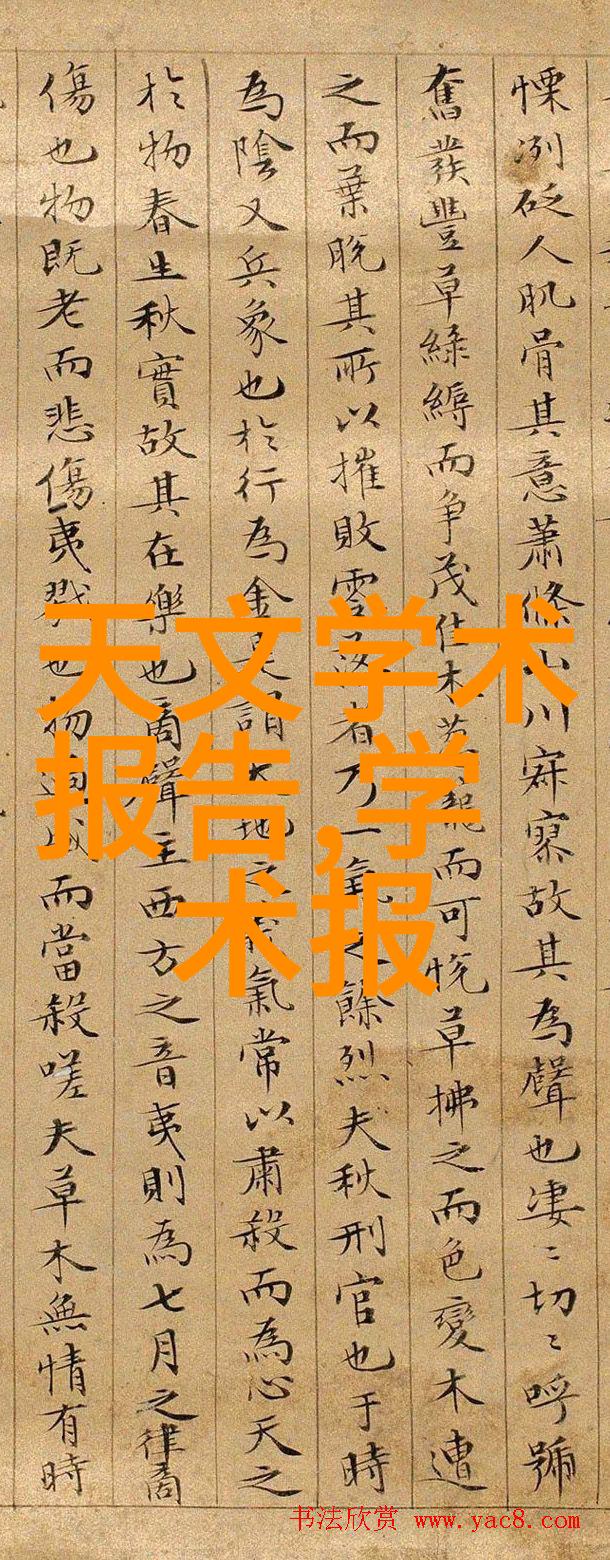 慄冽砭人肌骨其意蕭條山川寂寥故其為聲也凄〻切〻呼號
奮發豐草綠縟而争茂佳木葱蘢而可悅草拂之而色變木遭
之而葉脫其所以摧敗零落者乃一氣之餘烈夫秋刑官也于時
為陰又兵象也於行為金是謂天地之義氣常以肅殺而為心天之
於物春生秋實故其在樂也商聲主西方之音夷則為七月之律商
傷也物既老而悲傷夷戮也物過盛而當殺嗟夫草木無情有時
天文学术
报告,学
术报
书法欣赏 www.yac8.com